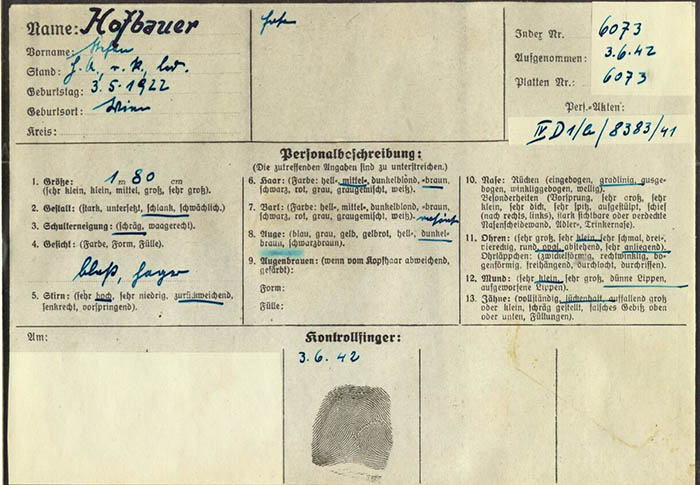 Name: Hofbauer
Vorname: Stefan
Stand: , r. k., led.
Geburtstag: 3.5.1922
Geburtsort: Wien
Kreis:
Index Nr. 6073
Aufgenommen: 3.6.42
Platten Nr.: 6073
Pers.-Akten:
IV D1/a/8383/41
Personalbeschreibung:
(Die zutreffenden Angaben sind zu unterstreichen.)
1. Größe: 1 m 80 cm
(sehr klein, klein, mittel, groß, sehr groß).
2. Gestalt: (stark, untersetzt, schlank, schwächlich.)
3. Schulterneigung: (schräg, waagerecht.)
4. Gesicht: (Farbe, Form, Fülle).
blaß, hager
5. Stirn: (sehr hoch, sehr niedrig, zurückweichend,
senkrecht, vorspringend).
6. Haar: (Farbe: hell-, mittel-, dunkelblond, -braun,
schwarz, rot, grau, graugemischt, weiß).
7. Bart: (Farbe: hell-, mittel-, dunkelblond, -braun,
schwarz, rot, grau, graugemischt, weiß).
8. Auge: (blau, grau, gelb, gelbrot, hell-, dunkel-
braun, schwarzbraun).
9. Augenbrauen: (wenn vom Kopfhaar abweichend,
gefärbt):
Form:
Fülle:
10. Nase: Rücken (eingebogen, gradlinig, ausge-
bogen, winkliggebogen, wellig).
Besonderheiten (Vorsprung, sehr groß, sehr
klein, sehr dick, sehr spitz, aufgestülpt, schief
(nach rechts, links), stark sichtbare oder verdeckte
Nasenscheidewand, Adler-, Trinkernase).
11. Ohren: (sehr groß, sehr klein, sehr schmal, drei-
eckig, rund, oval, abstehend, sehr anliegend).
Ohrläppchen: (zwickelförmig, rechtwinklig, bo-
genförmig, freihängend, durchlocht, durchrissen).
12. Mund: (sehr klein, sehr groß, dünne Lippen,
aufgeworfene Lippen).
13. Zähne: (vollständig, lückenhaft, auffallend groß
oder klein, schräg gestellt, falsches Gebiß oben
oder unten, Füllungen).
Am:
Kontrollfinger:
3.6.42